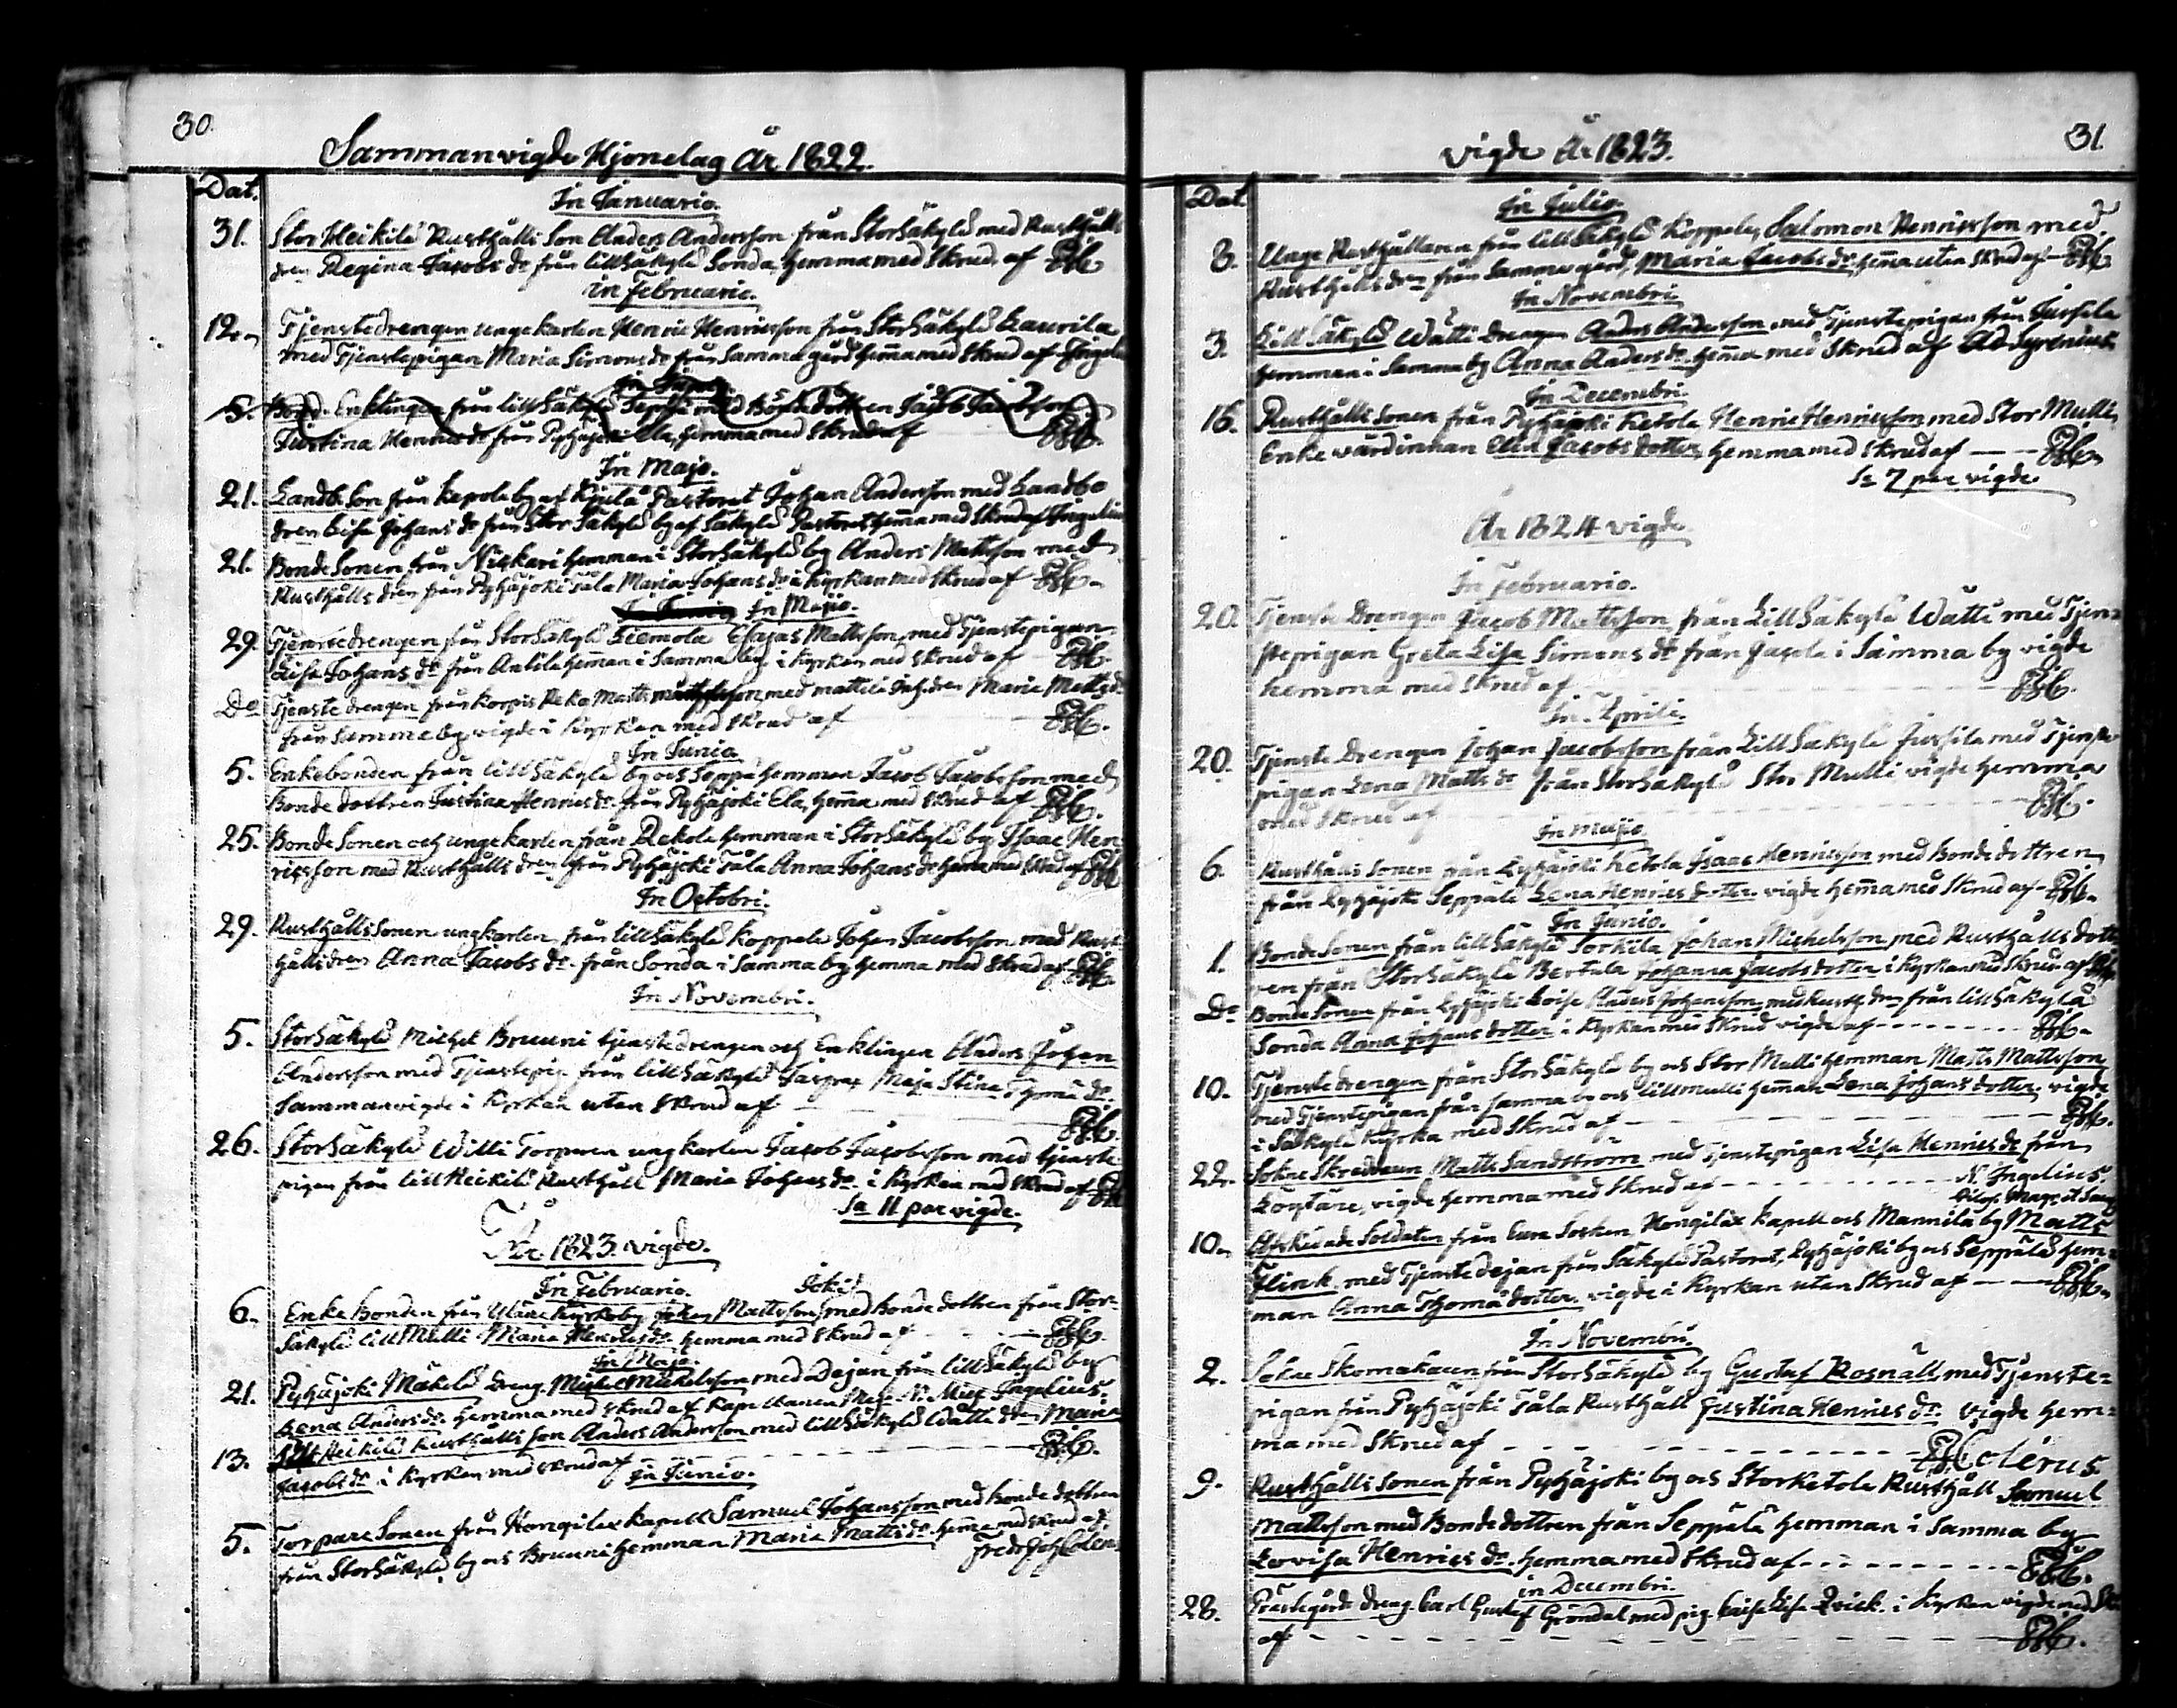 30.
Sammanvigde Hjonelag År 1822.
Dat.
In Januario.
31. Stor Heikilä Rusthålls Son Anders Andersson från Storsäkylä med Rusthålls
dren Regina Jacobs dr från lillsäkylä Sonda, hemma med Skrud af
in Februario.
12. Tjenstedrengen ungekarlen Henric Henricsson från StorSäkylä Laurila
med Tjenstepigan Maria Simons dr från Samma gård hemma med Skrud af Ingelius
In
5. Bond. Enklingen från lillsäkylä Seppä med Böndedottren Jacob Jacobsson
Justina Henrics dr från Pyhäjoki Ela, hemma med Skrud af
In Majo.
21. Landb. Son från Kepola by af Kjula Pastorat Johan Andersson med Landbo
dren Lisa Johans dr från Stor Säkylä by af Säkylä Pastorat hemma med Skrud af Ingelius
21. Bonde Sonen från Niskari hemman i StorSäkylä by Anders Mattsson med
Rusthålls dren från Pyhäjoki Tåla Maria Johans dr i Kyrkan med Skrud af
In Majo.
29. Tjenstedrengen från StorSäkylä Esajas Mattsson, med Tjenstepigan
Lisa Johans dr från Anttila heman i Samma by i Kyrkan med Skrud af
Do Tjenste drengen från Korpis Reko Matts med Mattila Inh. dren Maria Matts dr
från Samma by vigde i Kyrkan med Skrud af
In Junio
5. Enkebonden från lillSäkylä by och Seppä hemman Jacob Jacobsson med
Bonde dottren Justina Henrics dr från Pyhäjoki Ela, hemma med Skrud af
25. Bonde Sonen och unge karlen från Rekola hemman i StorSäkylä by Isaac Hen-
ricsson med Rusthålls dren från Pyhäjoki Tåla Anna Johans dr hemma med Skrud af
In Octobri.
29. Rusthålls Sonen ungkarlen från lillSäkylä Koppala Johan Jacobsson med Rust-
hålls dren Anna Jacobs dr från Sonda i Samma by hemma med Skrud af
In Novembri.
5. StorSäkylä Michel Bruuni tjenstedrengen och Enklingen Anders Johan
Andersson med Tjenstepig. från lillSäkylä Maja Stina Thoma dr
Sammanvigde i Kyrkan uten Skrud af
26. StorSäkylä Willi Torparen ungkarlen Jacob Jacobsson med tjenste
pigan från lill Heikilä Rusthåll Maria Johans dr i Kyrkan med Skrud af
Sa 11 par vigde.
År 1823 vigde.
In Februario. Joki
6. Enke Bonden från Yläne Kyrkoby Johan Mattsson, med Bonde dottren från Stor-
Säkylä lill Mulli Maria Henrics dr hemma med Skrud af
In Majo.
21. Pyhäjoki Mäkelä dreng Michel Michelsson med Dejan från lillSäkylä by
Lena Anders dr hemma med Skrud af Kapellanen Ingelius.
13. Heikilä Rusthålls Son Anders Andersson med lillSäkylä Watti dren Maria
Jacobs dr i Kyrkan med Skrud af
In Junio.
5. Torpare Sonen från Hongilax Kapell Samuel Johansson med Bonde dottren
från StorSäkylä by och Bruuni hemman Maria Matts dr hemma med Skrud af
Fredr Joh Colerus
31.
vigde År 1823.
Dat
In Julio.
3. Unge Rusthållaren från lillSäkylä Koppala, Salomon Henricsson med
Rusthålls dren från Samma gård, Maria Jacobs dr hemma uten Skrud af
In Novembri
3. LillSäkylä Watti Drengen Anders Andersson, med Tjenstepigan från Jussila
hemman i Samma by Anna Anders dr hemma med Skrud af Ad Syrenius
In Decembri.
16. Rusthålls Sonen från Pyhäjoki Ketola Henric Henricsson med Stor Mulli
Enke värdinnan Elin Jacobs dotter, hemma med Skrud af
Sa 7 par vigde.
År 1824 vigde
In Februario.
20. Tjenste Drengen Jacob Mattsson från LillSäkylä Watti med Tjen-
stepigan Greta Lisa Simons dr från i Samma by vigde
hemma med Skrud af
In Aprili.
20. Tjenste Drengen Johan Jacobsson från LillSäkylä Jussila med Tjenste
pigan Lena Matts dr från StorSäkylä Stor Mulli vigde hemma
med Skrud af
In Majo
6. Rusthålls Sonen från Pyhäjoki Ketola Isaac Henricsson med Bonde dottren
från Pyhäjoki Seppälä Lena Henrics dotter vigde hemma med Skrud af
In Junio.
1. Bonde Sonen från lillSäkylä Torkila Johan Michelsson med Rusthålls dott-
ren från StorSäkylä Bertula Johanna Jacobs dotter i Kyrkan med Skrud af
Do Bonde Sonen från Pyhäjoki Anders Johansson, med Rusth. dren från lillSäkylä
Sonda Anna Johans dotter i Kyrkan med Skrud vigde af
10. Tjenste drengen från StorSäkylä by och Stor Mulli hemman Matts Mattsson
med Tjenstepigan från Samma by och lill Mulli heman Lena Johans dotter, vigde
i Säkylä Kyrka med Skrud af
22. Sokne Skreddaren Matts Sandström med Tjenstepigan Lisa Henrics dr från
vigde hemma med Skrud af N. Ingelius.
10. Afskedade Soldaten från Eura Socken, Hongilax Kapell och Mannila by Matts
Flink med Tjenste dejan från Säkylä Pastorat, Pyhäjoki by och Seppälä hem-
man Anna Thomä dotter vigde i Kyrkan uten Skrud af
In Novembri.
2. Sokne Skomakaren från StorSäkylä by Gustaf Rosnäll, med Tjenste-
pigan från Pyhäjoki Tåla Rusthåll Justina Henrics dr vigde hem-
ma med Skrud af Colérus
9. Rusthålls Sonen från Pyhäjoki by och Stor Ketola Rusthåll Samuel
Mattsson med Bonde dottren från Seppälä hemman i Samma by
Lovisa Henrics dr hemma med Skrud af
in Decembri.
28. Prästegårds Dreng Carl Gustaf Gröndal med pig. Caisa Lisa Qvick. i Kyrkan vigde med
af